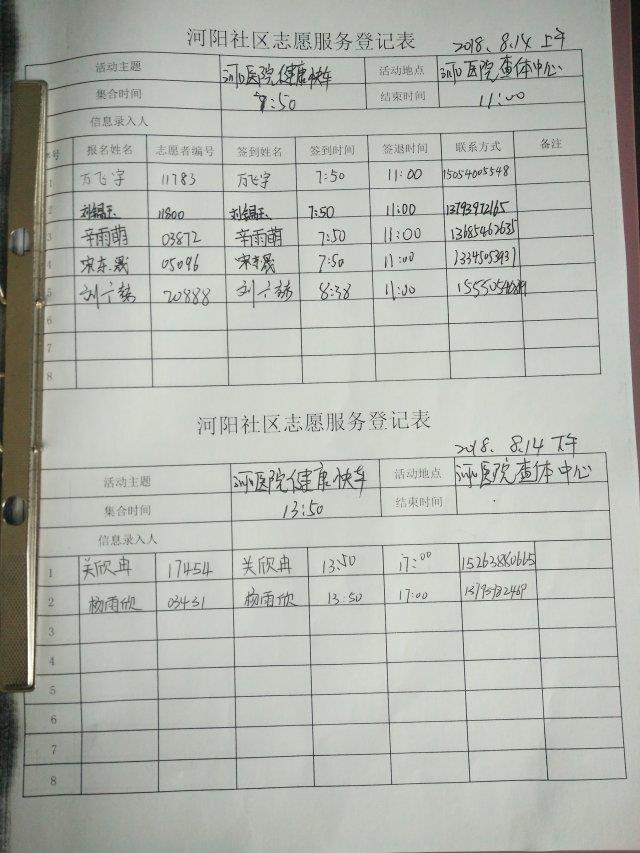 河阳社区志愿服务登记表
2018、8.14 上午
活动主题 医院健康快车 活动地点 医院查体中心
集合时间 7:50 结束时间 11:00
信息录入人
序号 报名姓名 志愿者编号 签到姓名 签到时间 签退时间 联系方式 备注
1 万飞宇 11783 万飞宇 7:50 11:00 15054005548
2 11800 7:50 11:00
3 辛雨萌 03872 辛雨萌 7:50 11:00
4 宋东晟 05096 宋东晟 7:50 11:00
5 刘 20888 刘 8:38 11:00
6
7
8
河阳社区志愿服务登记表
2018、8.14 下午
活动主题 医院健康快车 活动地点 医院查体中心
集合时间 13:50 结束时间
信息录入人
1 关欣冉 17454 关欣冉 13:50 17:00 15263860615
2 杨雨欣 03431 杨雨欣 13:50 17:00
3
4
5
6
7
8